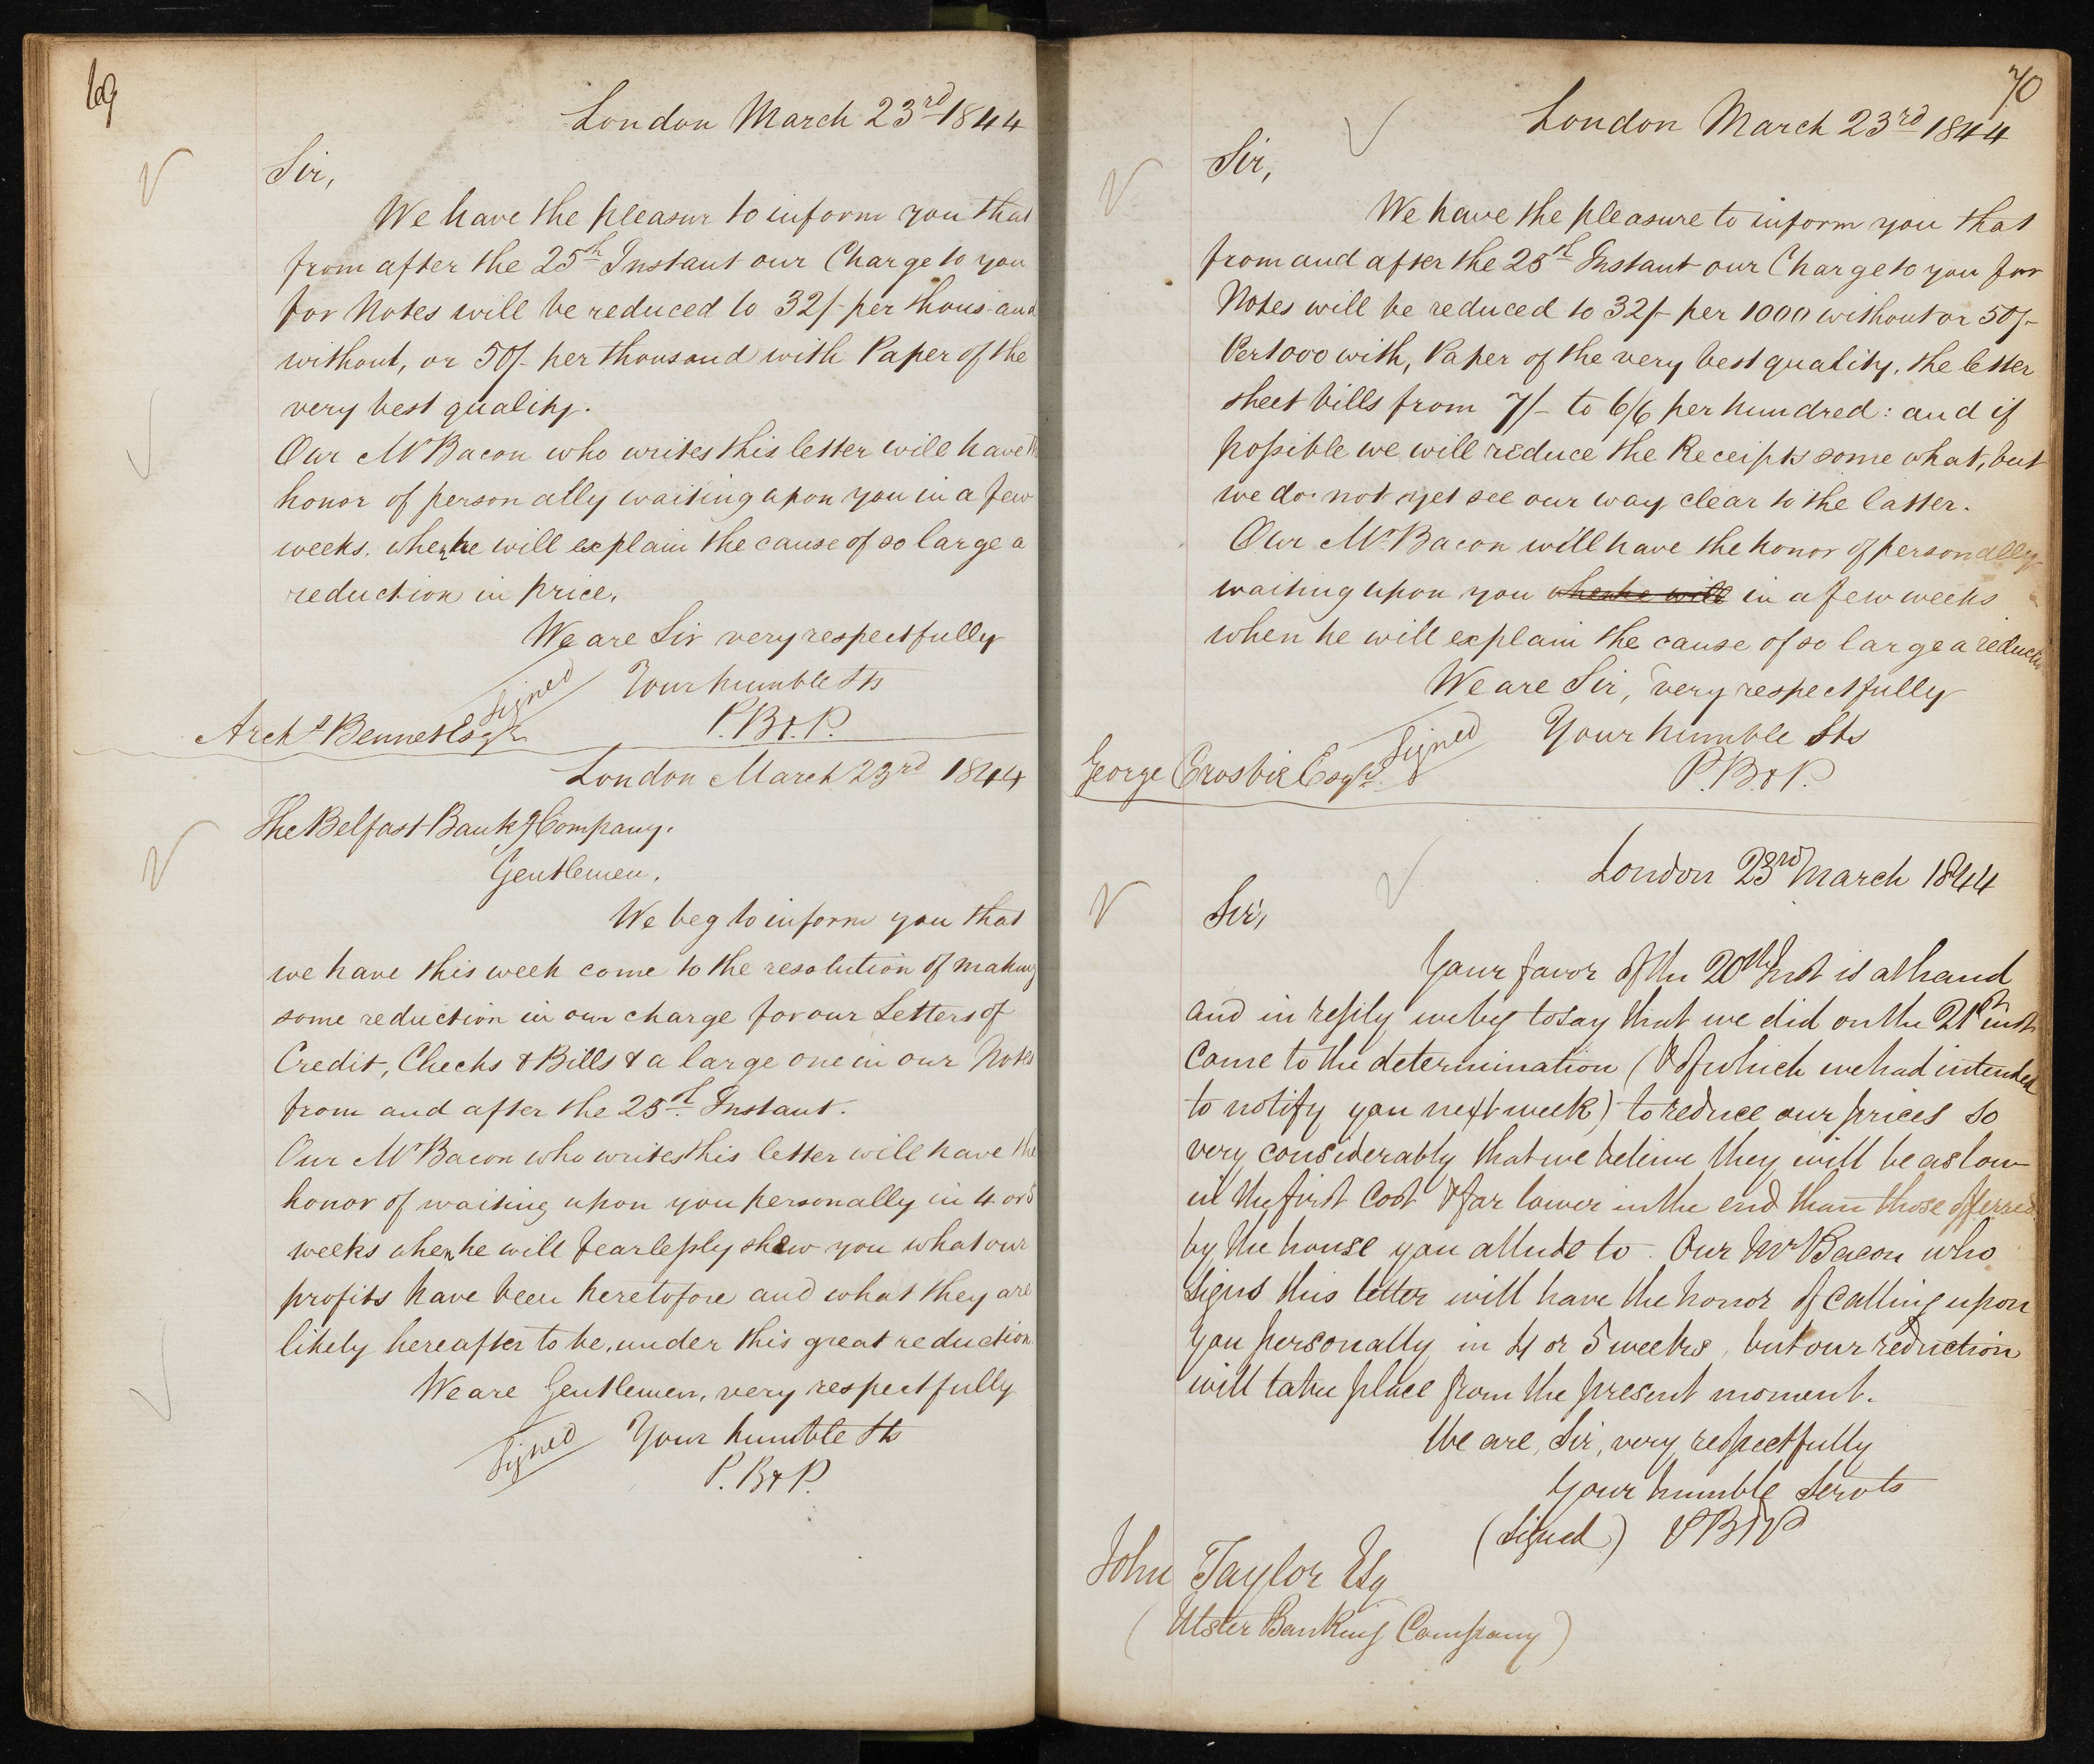 69
London March 23rd 1844
Sir,
We have the pleasur to inform you that
from after the 25th Instant our Charge to you
for Notes will be reduced to 32/- per thous-and
without, or 50/- per thousand with Paper of the
very best quality.
Our Mr Bacon who writes this letter will have the
honor of personally waiting upon you in a few
weeks. when he will explain the cause of so large a
reduction in price.
We are Sir very respectfully
Signed Your humble Sts
P. B & P.
Archd Bennet Esqr
London March 23rd 1844
The Belfast Bankg Company.
Gentlemen,
We beg to inform you that
we have this week come to the resolution of making
some reduction in our charge for our Letters of
Credit, Checks & Bills & a large one in our Notes
from and after the 25th Instant.
Our Mr Bacon who writes this letter will have the
honor of waiting upon you personally in 4 or 5
weeks when he will fearlessly shew you what our
profits have been heretofore and what they are
likely hereafter to be, under this great reduction.
We are Gentlemen, very respectfully
Signed Your humble Sts
P. B & P.
70
London March 23rd 1844
Sir,
We have the pleasure to inform you that
from and after the 25th Instant our Charge to you for
Notes will be reduced to 32/- per 1000 without or 50/-
Per 1000 with, Paper of the very best quality, the letter
sheet bills from 7/- to 6/6 per hundred: and if
possible we will reduce the Receipts some what, but
we do not yet see our way clear to the latter.
Our Mr Bacon will have the honor of personally
waiting upon you when he will in a few weeks
when he will explain the cause of so large a reduction
We are Sir, very respectfully
Signed Your humble Sts
P. B & P.
George Crosbie Esqr.
London 23rd March 1844
Sir,
Your favor of the 20th Inst is at hand
and in reply we beg to say that we did on the 21st inst
come to the determination (& of which we had intended
to notify you next week) to reduce our prices so
very considerably that we believe they will be as low
in the first cost & far lower in the end than those offerred
by the house you allude to. Our Mr Bacon who
signs this letter will have the honor of calling upon
you personally in 4 or 5 weeks, but our reduction
will take place from the present moment.
We are, Sir, very respectfully
Your humble Servts
(Signed) P B & P
John Taylor Esq
(Ulster Banking Company)